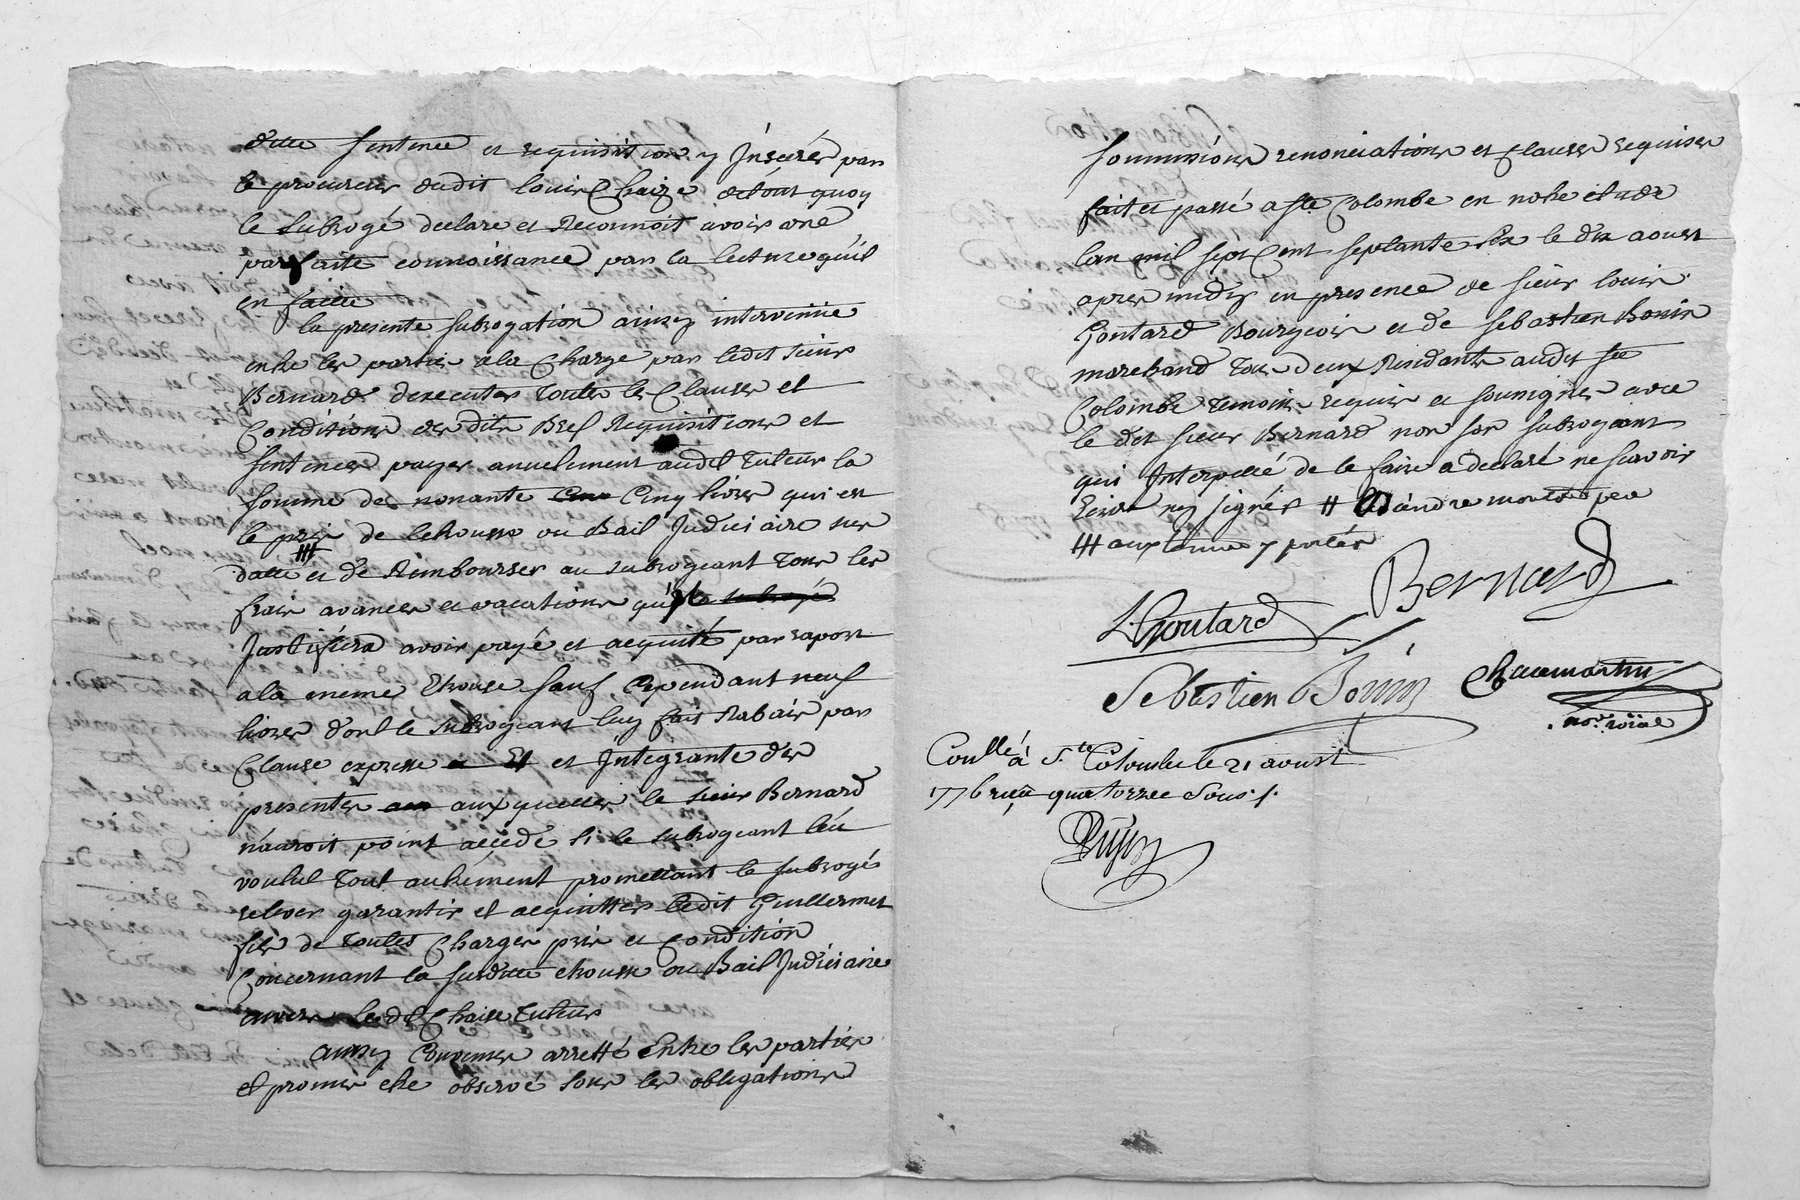 ditte sentence et requisition y Inserér par
le procureur dudit louis Chaize detout quoy
le subrogé declare et Reconnoit avoir une
parfaite connoissance par la lecture quil
en faitte
la presente subrogation ainsy intervenüe
entre les parties ala Charge par ledit sieur
Bernard dexecuter toutes les Clauses et
Conditions des dits Bref Requisitions et
sentences payer anuelement audit tuteur la
somme de nonante Cinq livres qui est
le prix de lehousse ou Bail Judiciaire sur
datte et de Rembourser au subrogeant tous les
frais avances et vacations qu'il
Justifiera avoir payé et acquité par raport
ala meme Ehouse sauf Cependant neuf
livres dont le subrogeant luy fait Rabais par
Clause expresse et Integrante des
presentes auxquelles le sieur Bernard
n'auroit point accedé si le subrogeant leu
voulut tout autrement promettant le subrogé
relever garantir et acquitter ledit Guillermet
fils de toutes Charges prix et Condition
Concernant la susditte ehousse ou Bail Judiciaire
envers led Chaize tuteur
ainsy Convenus arretté Entre les parties
et promis etre observé sous les obligations
soumissions renonciations et Clauses requises
fait et passé a ste Colombe en notre etude
lan mil sept Cent septante six le dix aoust
apres midy en presence de sieur louis
Goutard Bourgeois et de sebastien Bonin
marchand tous deux Residants audit ste
Colombe temoins requis et soussignes avec
le dit sieur Bernard non son subrogeant
qui Interpellé de le faire a declaré ne scavoir
Ecrire ny signer # 
### aux termes y portés
LGoutard Bernard
Sebastien Bonin Chacmartin
no.re roial
Coullé à S.te Colombe le 21 aoust
1776 reçu quatorze Sous